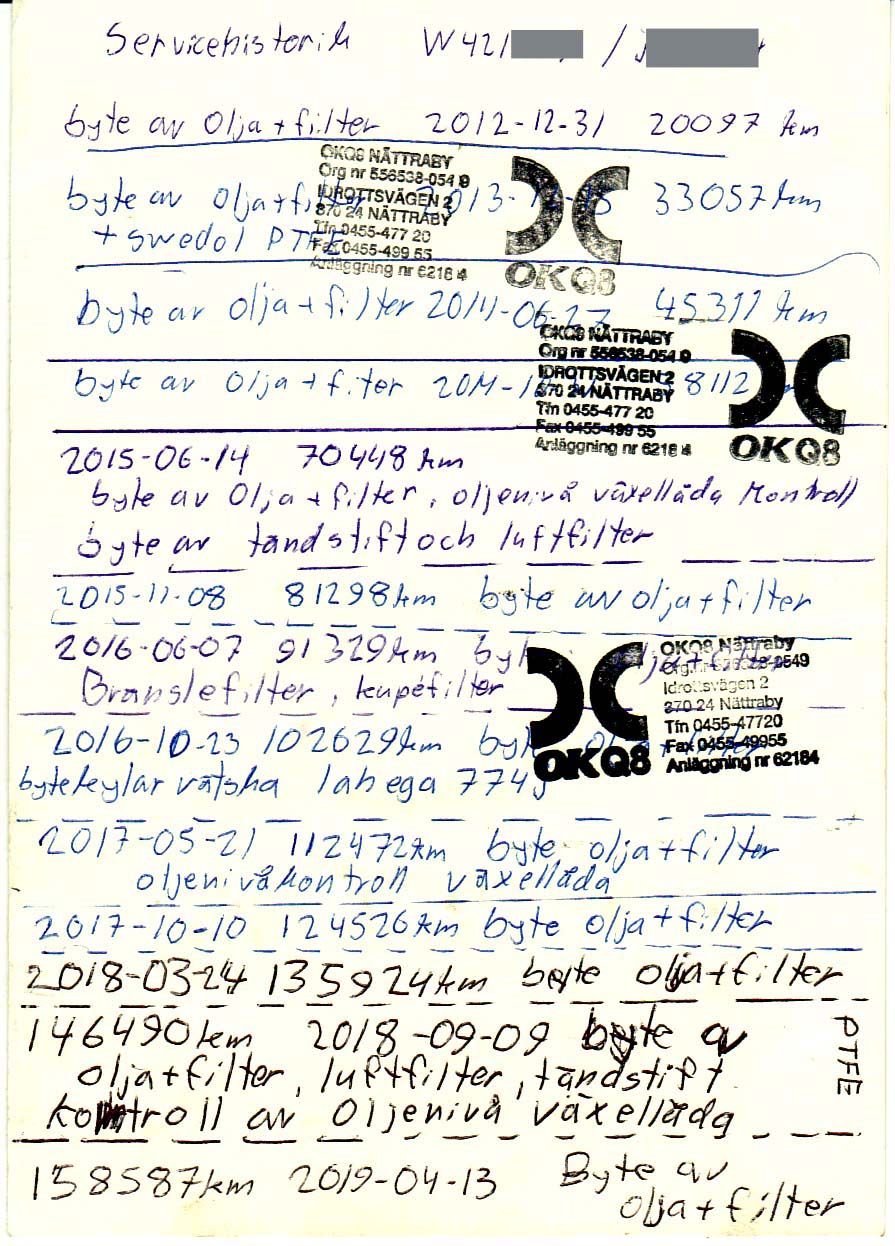 Servicehistorik W421 /
byte av olja + filter 2012-12-31 20097 km
OKQ8 NÄTTRABY
Org nr 556538-054 9
IDROTTSVÄGEN 2
370 24 NÄTTRABY
Tfn 0455-477 20
Fax 0455-499 55
Anläggning nr 6218 4
OKQ8
byte av olja + filter 2013-12-15 33057 km
+ swedol PTFE
byte av olja + filter 2014-06-27 45311 km
OKQ8 NÄTTRABY
Org nr 556538-054 9
IDROTTSVÄGEN 2
370 24 NÄTTRABY
Tfn 0455-477 20
Fax 0455-499 55
Anläggning nr 6218 4
OKQ8
byte av olja + filter 8112
2015-06-14 70448 km
byte av olja + filter, oljenivå växellåda kontroll
byte av tändstift och luftfilter
2015-11-08 81298 km byte av olja + filter
2016-06-07 91329 km byte olja + filter
Bränslefilter, kupéfilter
OKQ8
OKQ8 Nättraby
Org.nr 556538-0549
Idrottsvägen 2
370 24 Nättraby
Tfn 0455-47720
Fax 0455-49955
Anläggning nr 62184
2016-10-23 102629 km byte olja + filter
byte kylar vätska lahega 774
2017-05-21 112472 km byte olja + filter
oljenivåkontroll växellåda
2017-10-10 124526 km byte olja + filter
2018-03-24 135924 km byte olja + filter
146490 km 2018-09-09 byte av
olja + filter, luftfilter, tändstift
kontroll av Oljenivå växellåda
PTFE
158587 km 2019-04-13 Byte av
olja + filter